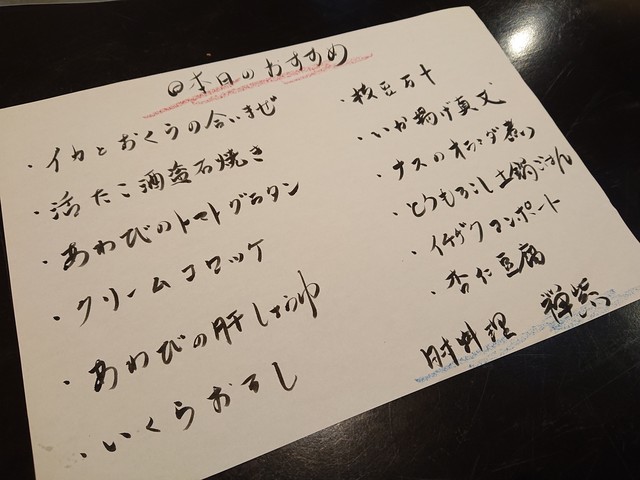 日本日のおすすめ
・イカとおくらの合いまぜ
・活たこ酒盗石焼き
・あわびのトマトグラタン
・クリームコロッケ
・あわびの肝しょうゆ
・いくらおろし
・枝豆万十
・いか揚げ真丈
・ナスのオランダ煮
・とうもろこし土鍋ごはん
・イチヂクコンポート
・杏仁豆腐
旬料理 禅紫